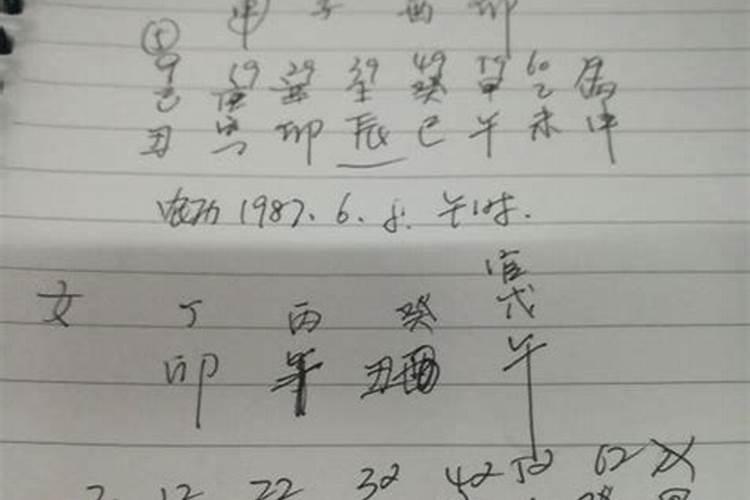 子 酉 卯
⑤
9 19 29 39 49 59 60
己 庚 辛 壬 癸 甲 乙 丙
丑 寅 卯 辰 巳 午 未 申
农历 1987. 6. 8. 午时.
官
女 丁 丙 癸 戊
卯 丑 午
2 12 22 32 42 52 62